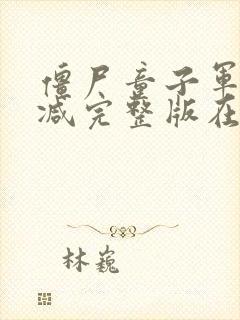 僵尸童子军
减完整版在
林巍